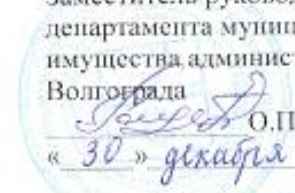 Заместитель руковод
департамента муниц
имущества админист
Волгограда
О.П
« 30 » декабря